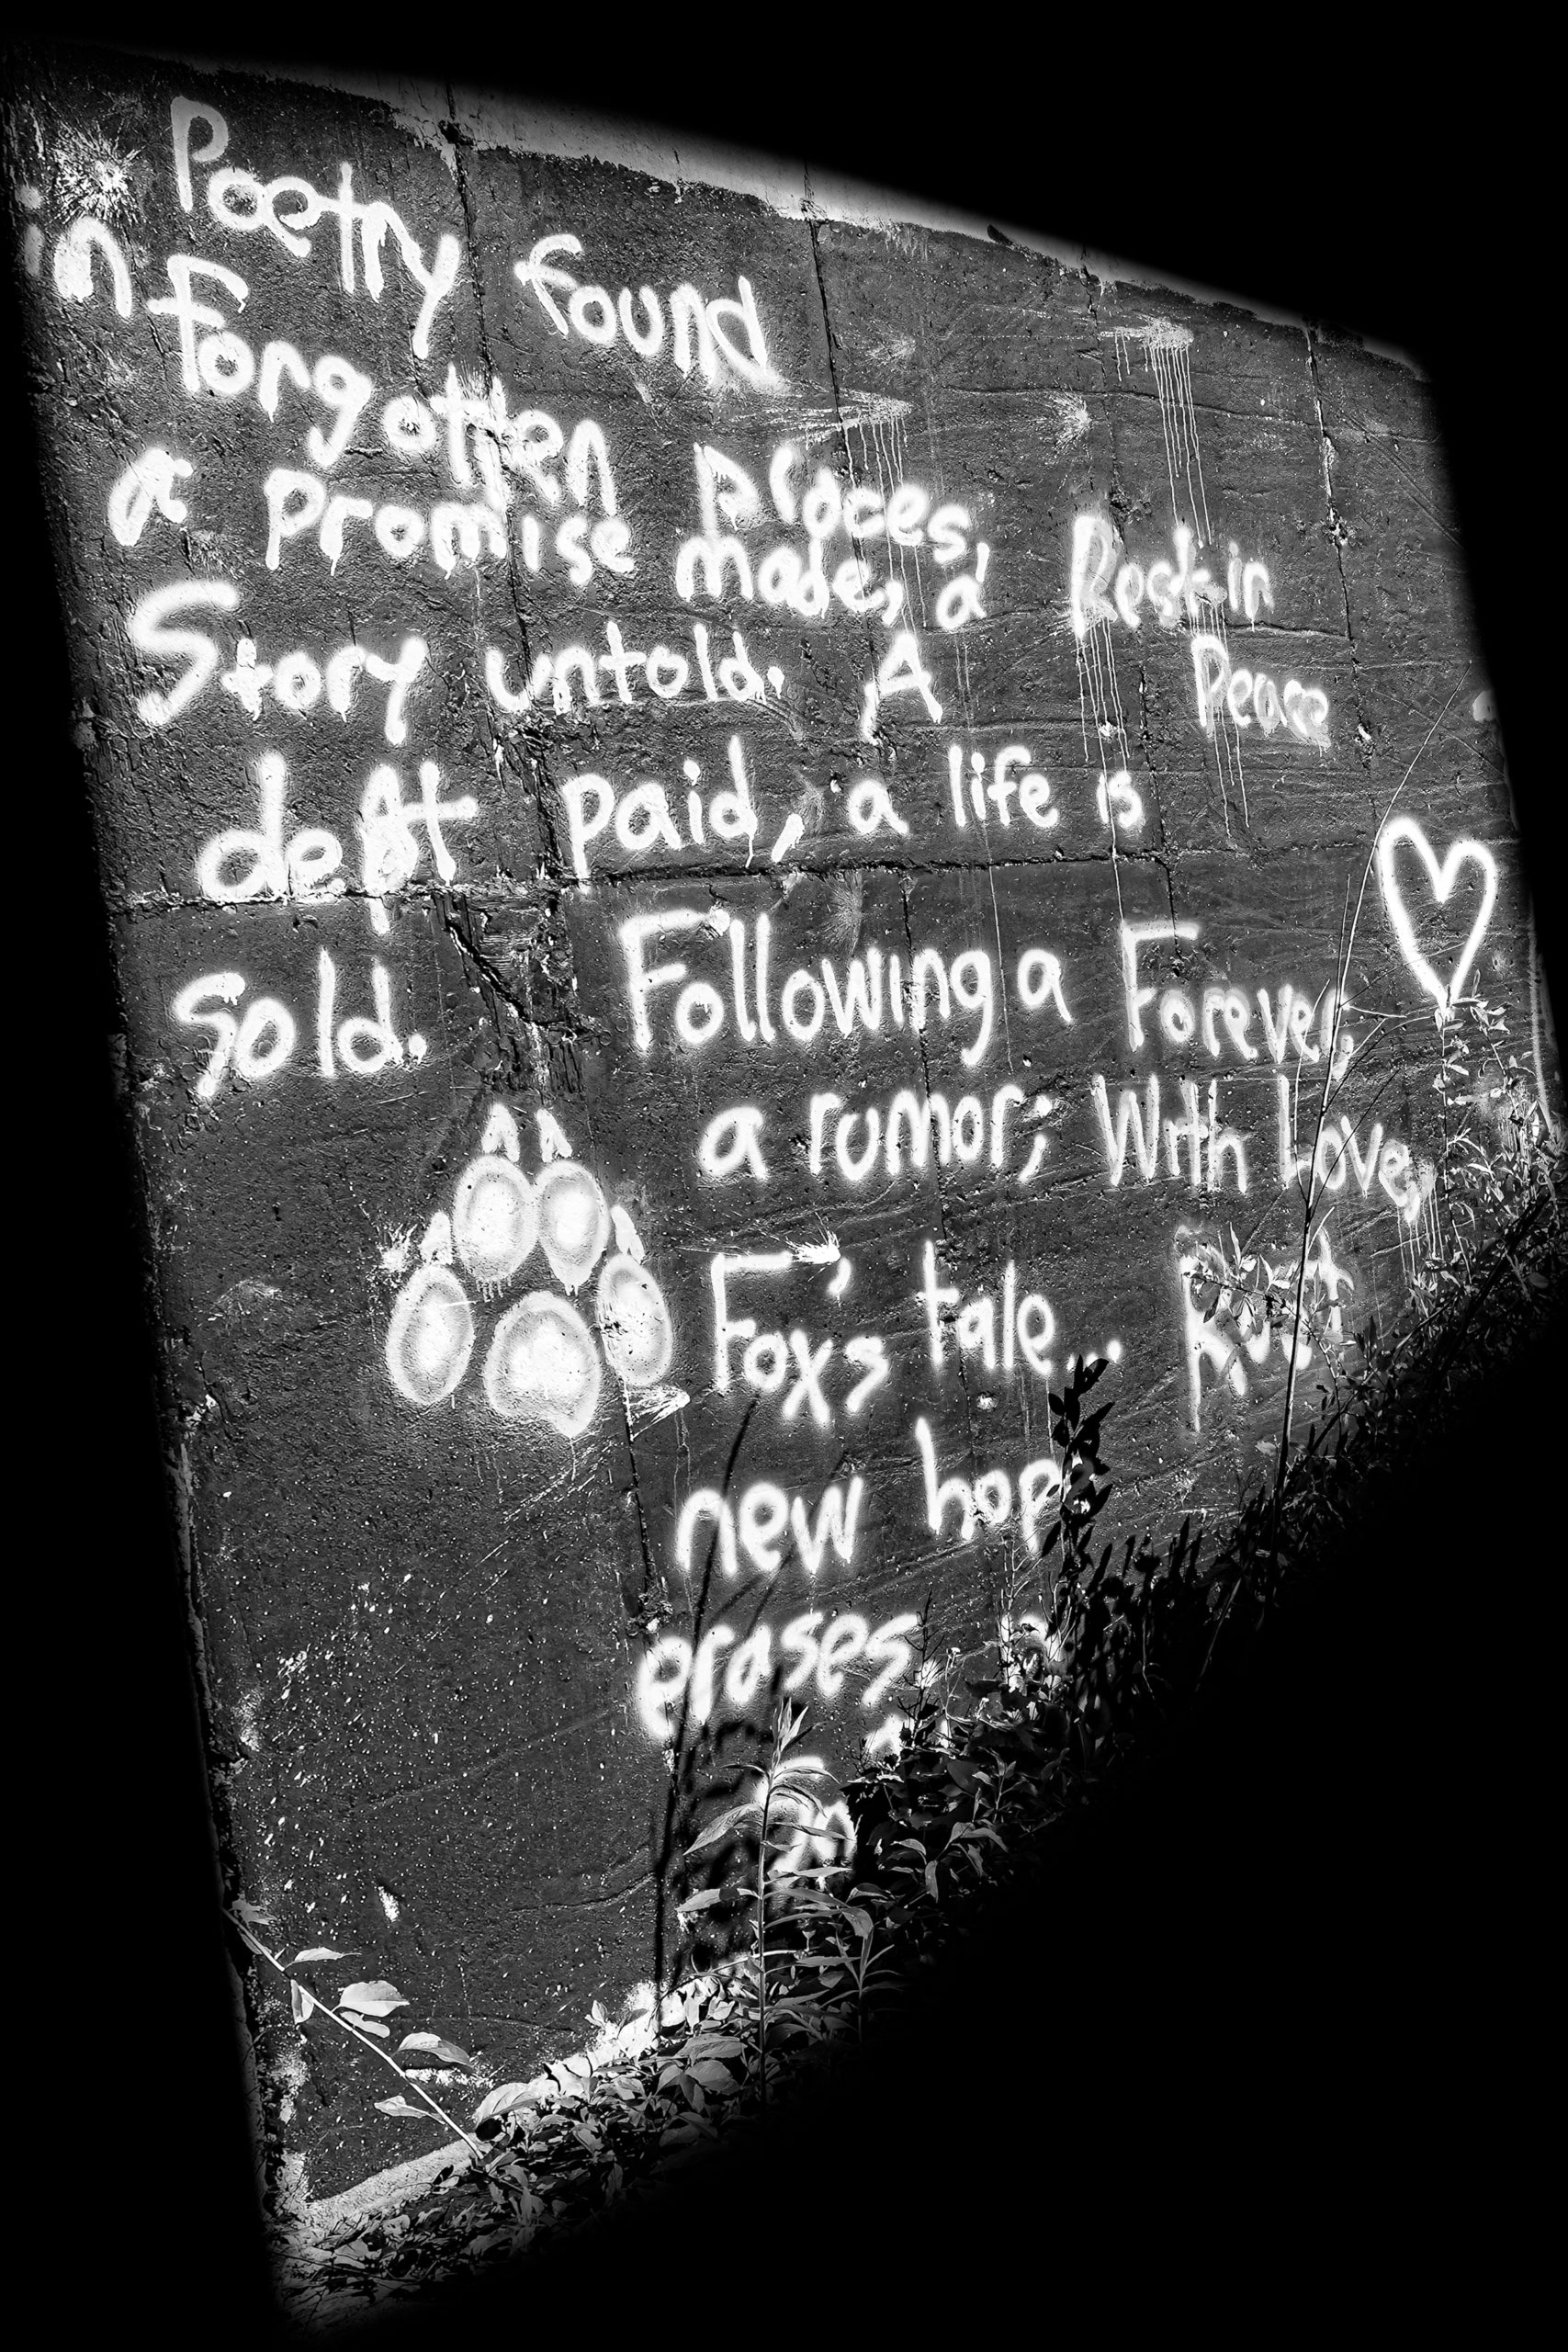 Poetry found
in Forgotten places,
a promise made, a
Story untold. A
debt paid, a life is
Sold. Following a Forever,
a rumor; With Love,
Fox's tale...
new hop
erases
on
Rest in
Peace